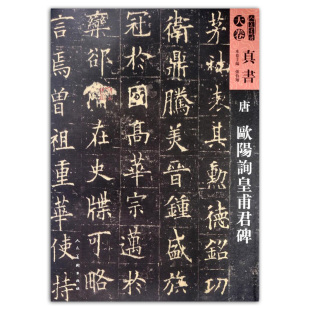 天卷
真書
唐
歐陽詢皇甫君碑
勳德銘功
衛鼎騰美晉鍾盛族
冠於國高華宗邁於
欒郤備在史牒可略
言焉曾祖重華使持